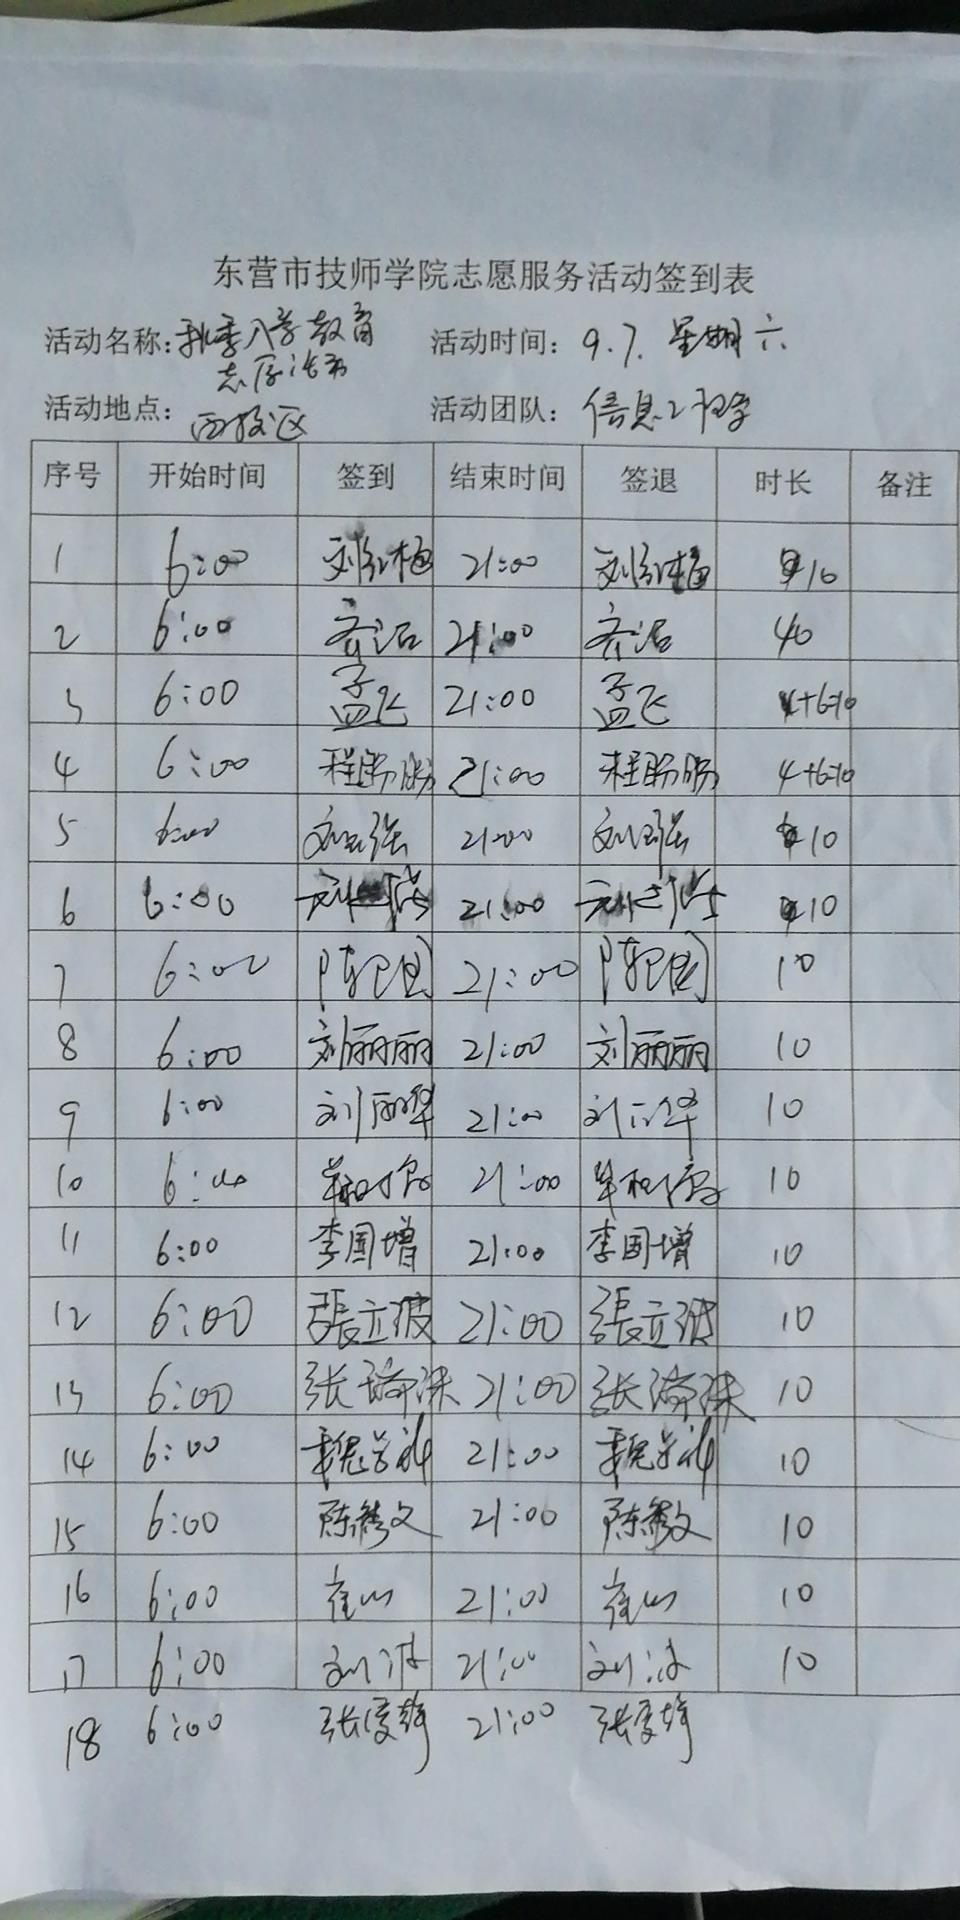 东营市技师学院志愿服务活动签到表
活动名称：秋季入学教育 活动时间：9.7. 星期六
志愿活动
活动地点：西校区 活动团队：信息工程学
序号 开始时间 签到 结束时间 签退 时长 备注
1 6:00 刘红梅 21:00 刘红梅 10
2 6:00 齐洁 21:00 齐洁 40
3 6:00 孟飞 21:00 孟飞 4+6=10
4 6:00 程盼盼 21:00 程盼盼 4+6=10
5 6:00 21:00 10
6 6:00 21:00 10
7 6:00 21:00 10
8 6:00 刘丽丽 21:00 刘丽丽 10
9 6:00 刘丽华 21:00 刘丽华 10
10 6:00 21:00 10
11 6:00 李国增 21:00 李国增 10
12 6:00 張立波 21:00 張立波 10
13 6:00 张 21:00 张 10
14 6:00 魏 21:00 魏 10
15 6:00 陈秀文 21:00 陈秀文 10
16 6:00 崔山 21:00 崔山 10
17 6:00 刘波 21:00 刘波 10
18 6:00 张 21:00 张